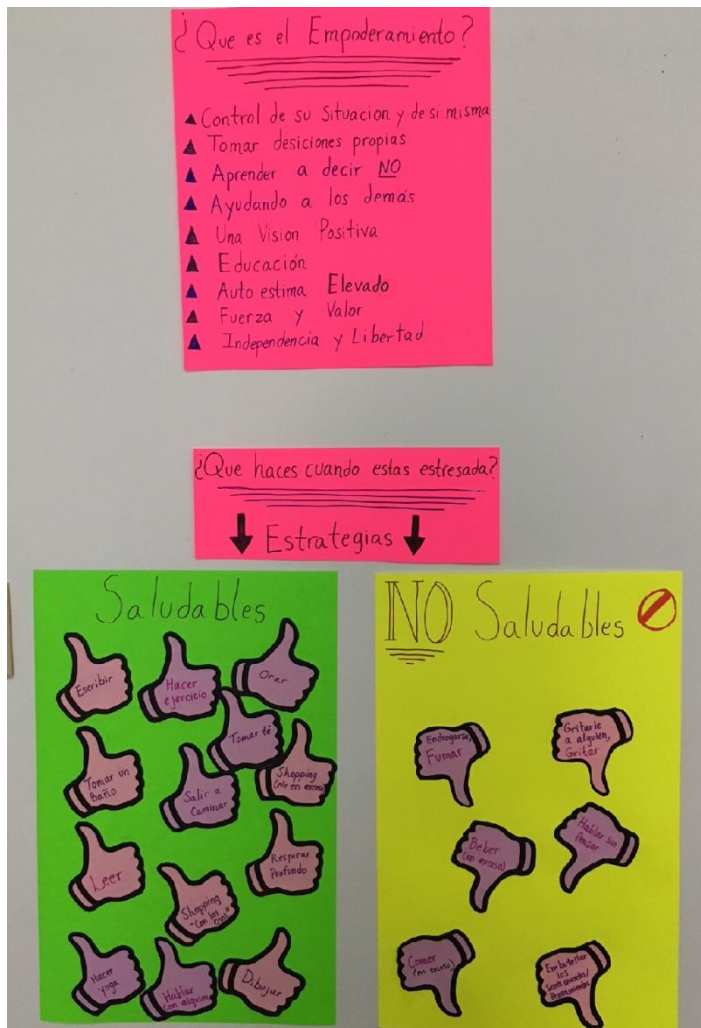 ¿Que es el Empoderamiento?
Control de su situacion y de si misma
Tomar desiciones propias
Aprender a decir NO
Ayudando a los demás
Una Vision Positiva
Educación
Auto estima Elevado
Fuerza y Valor
Independencia y Libertad
¿Que haces cuando estas estresada?
Estrategias
Saludables
Escribir
Hacer
ejercicio
Orar
Tomar té
Tomar un
Baño
Salir a
Caminar
Shopping
(No en exceso)
Leer
Shopping
"Con los
Ojos"
Respirar
Profundo
Hacer
yoga
Hablar
Con alguien
Dibujar
NO Saludables
Endrogarse,
Fumar
Gritarle
a alguien,
Gritar
Beber
(en exceso)
Hablar sin
Pensar
Comer
(en exceso)
Embotellar
los
Sentimientos/
Pensamientos